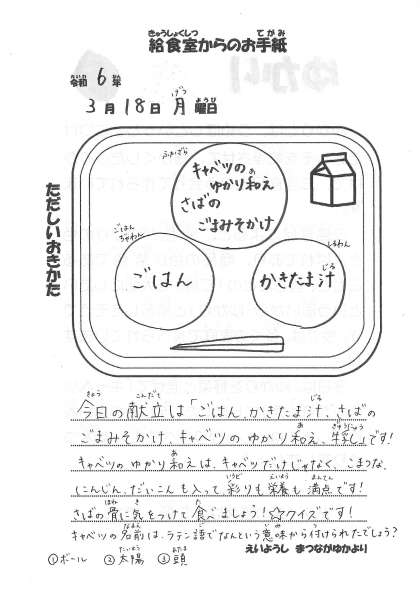 給食室からのお手紙
令和 6 年
3 月 18 日 月 曜日
ただしいおきかた
キャベツの
ゆかり和え
さばの
ごまみそかけ
ごはん
ちゃわん
ごはん
しるわん
かきたま汁
今日の献立は「ごはん、かきたま汁、さばの
ごまみそかけ、キャベツのゆかり和え、牛乳」です!
キャベツのゆかり和えは、キャベツだけじゃなく、こまつな、
にんじん、だいこんも入って、彩りも栄養も満点です!
さばの骨に気をつけて食べましょう!☆クイズです!
キャベツの名前は、ラテン語でなんという意味から付けられたでしょう?
えいようし まつながゆかより
①ボール ②太陽 ③頭